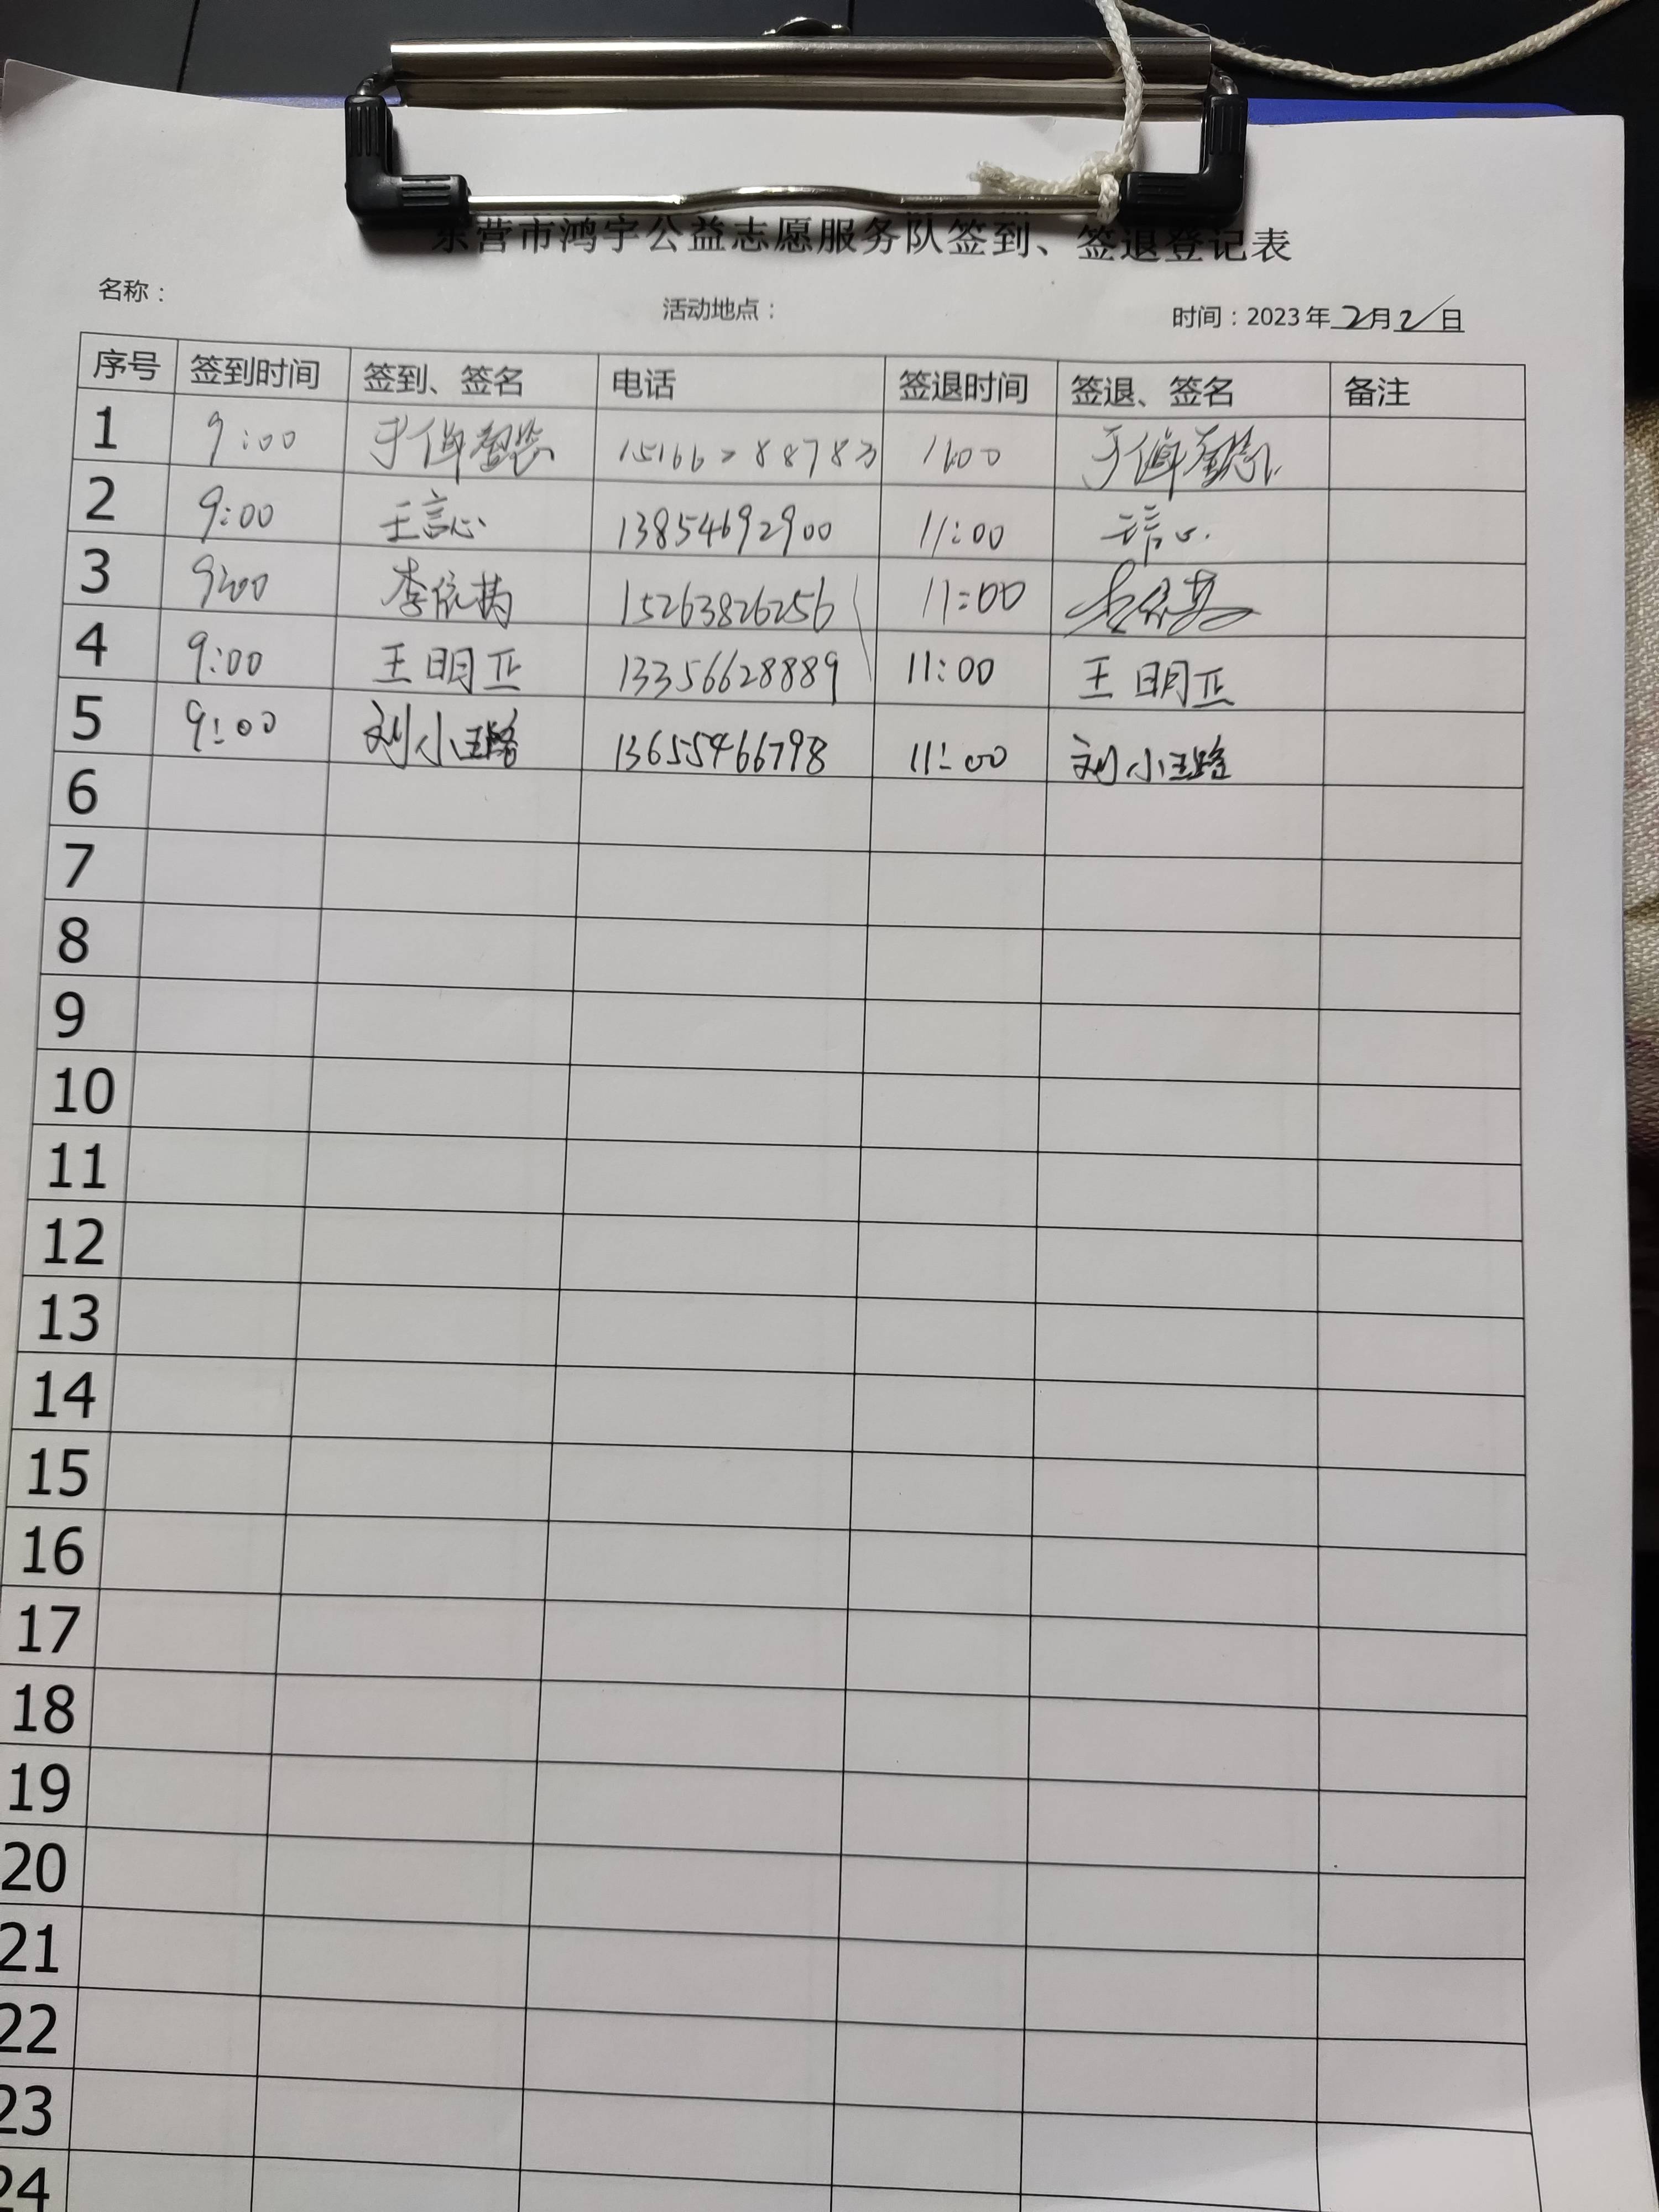 东营市鸿宇公益志愿服务队签到、签退登记表
名称：
活动地点：
时间：2023年2月2日
序号 签到时间 签到、签名 电话 签退时间 签退、签名 备注
1 9:00 11:00
2 9:00 王 13854692900 11:00
3 9:00 李依 15263826256 11:00
4 9:00 王明亚 13356628889 11:00 王明亚
5 9:00 刘小璐 13655466798 11:00 刘小璐
6
7
8
9
10
11
12
13
14
15
16
17
18
19
20
21
22
23
24